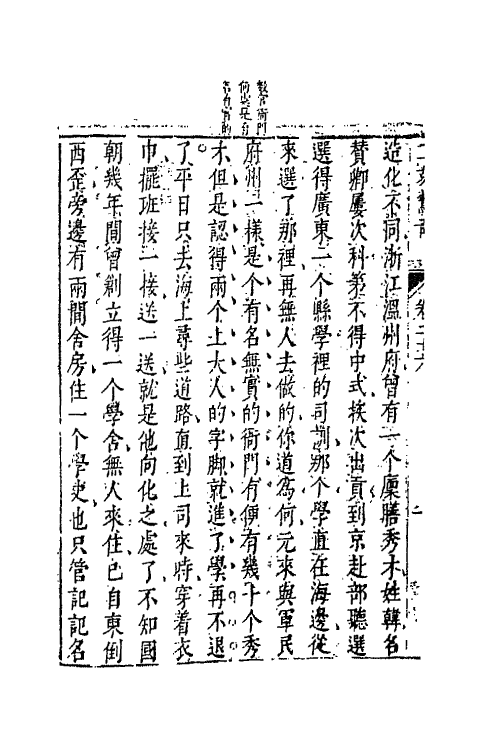 教官衙門
何嘗是有
名有實的
二刻驚奇
卷二十六
二
造化不同浙江溫州府曾有一个廩膳秀才姓韓名
賛卿屢次科第不得中式挨次出貢到京赴部聽選
選得廣東一个縣學裡的司訓那个學直在海邊從
來選了那裡再無人去做的你道為何元來與軍民
府州一樣是个有名無實的衙門有便有幾十个秀
才但是認得兩个上大人的字脚就進了學再不退
了平日只去海上尋些道路直到上司來時穿着衣
巾擺班接一接送一送就是他向化之處了不知國
朝幾年間曾創立得一个學舍無人來住已自東倒
西歪旁邊有兩間舍房住一个學吏也只管記記名